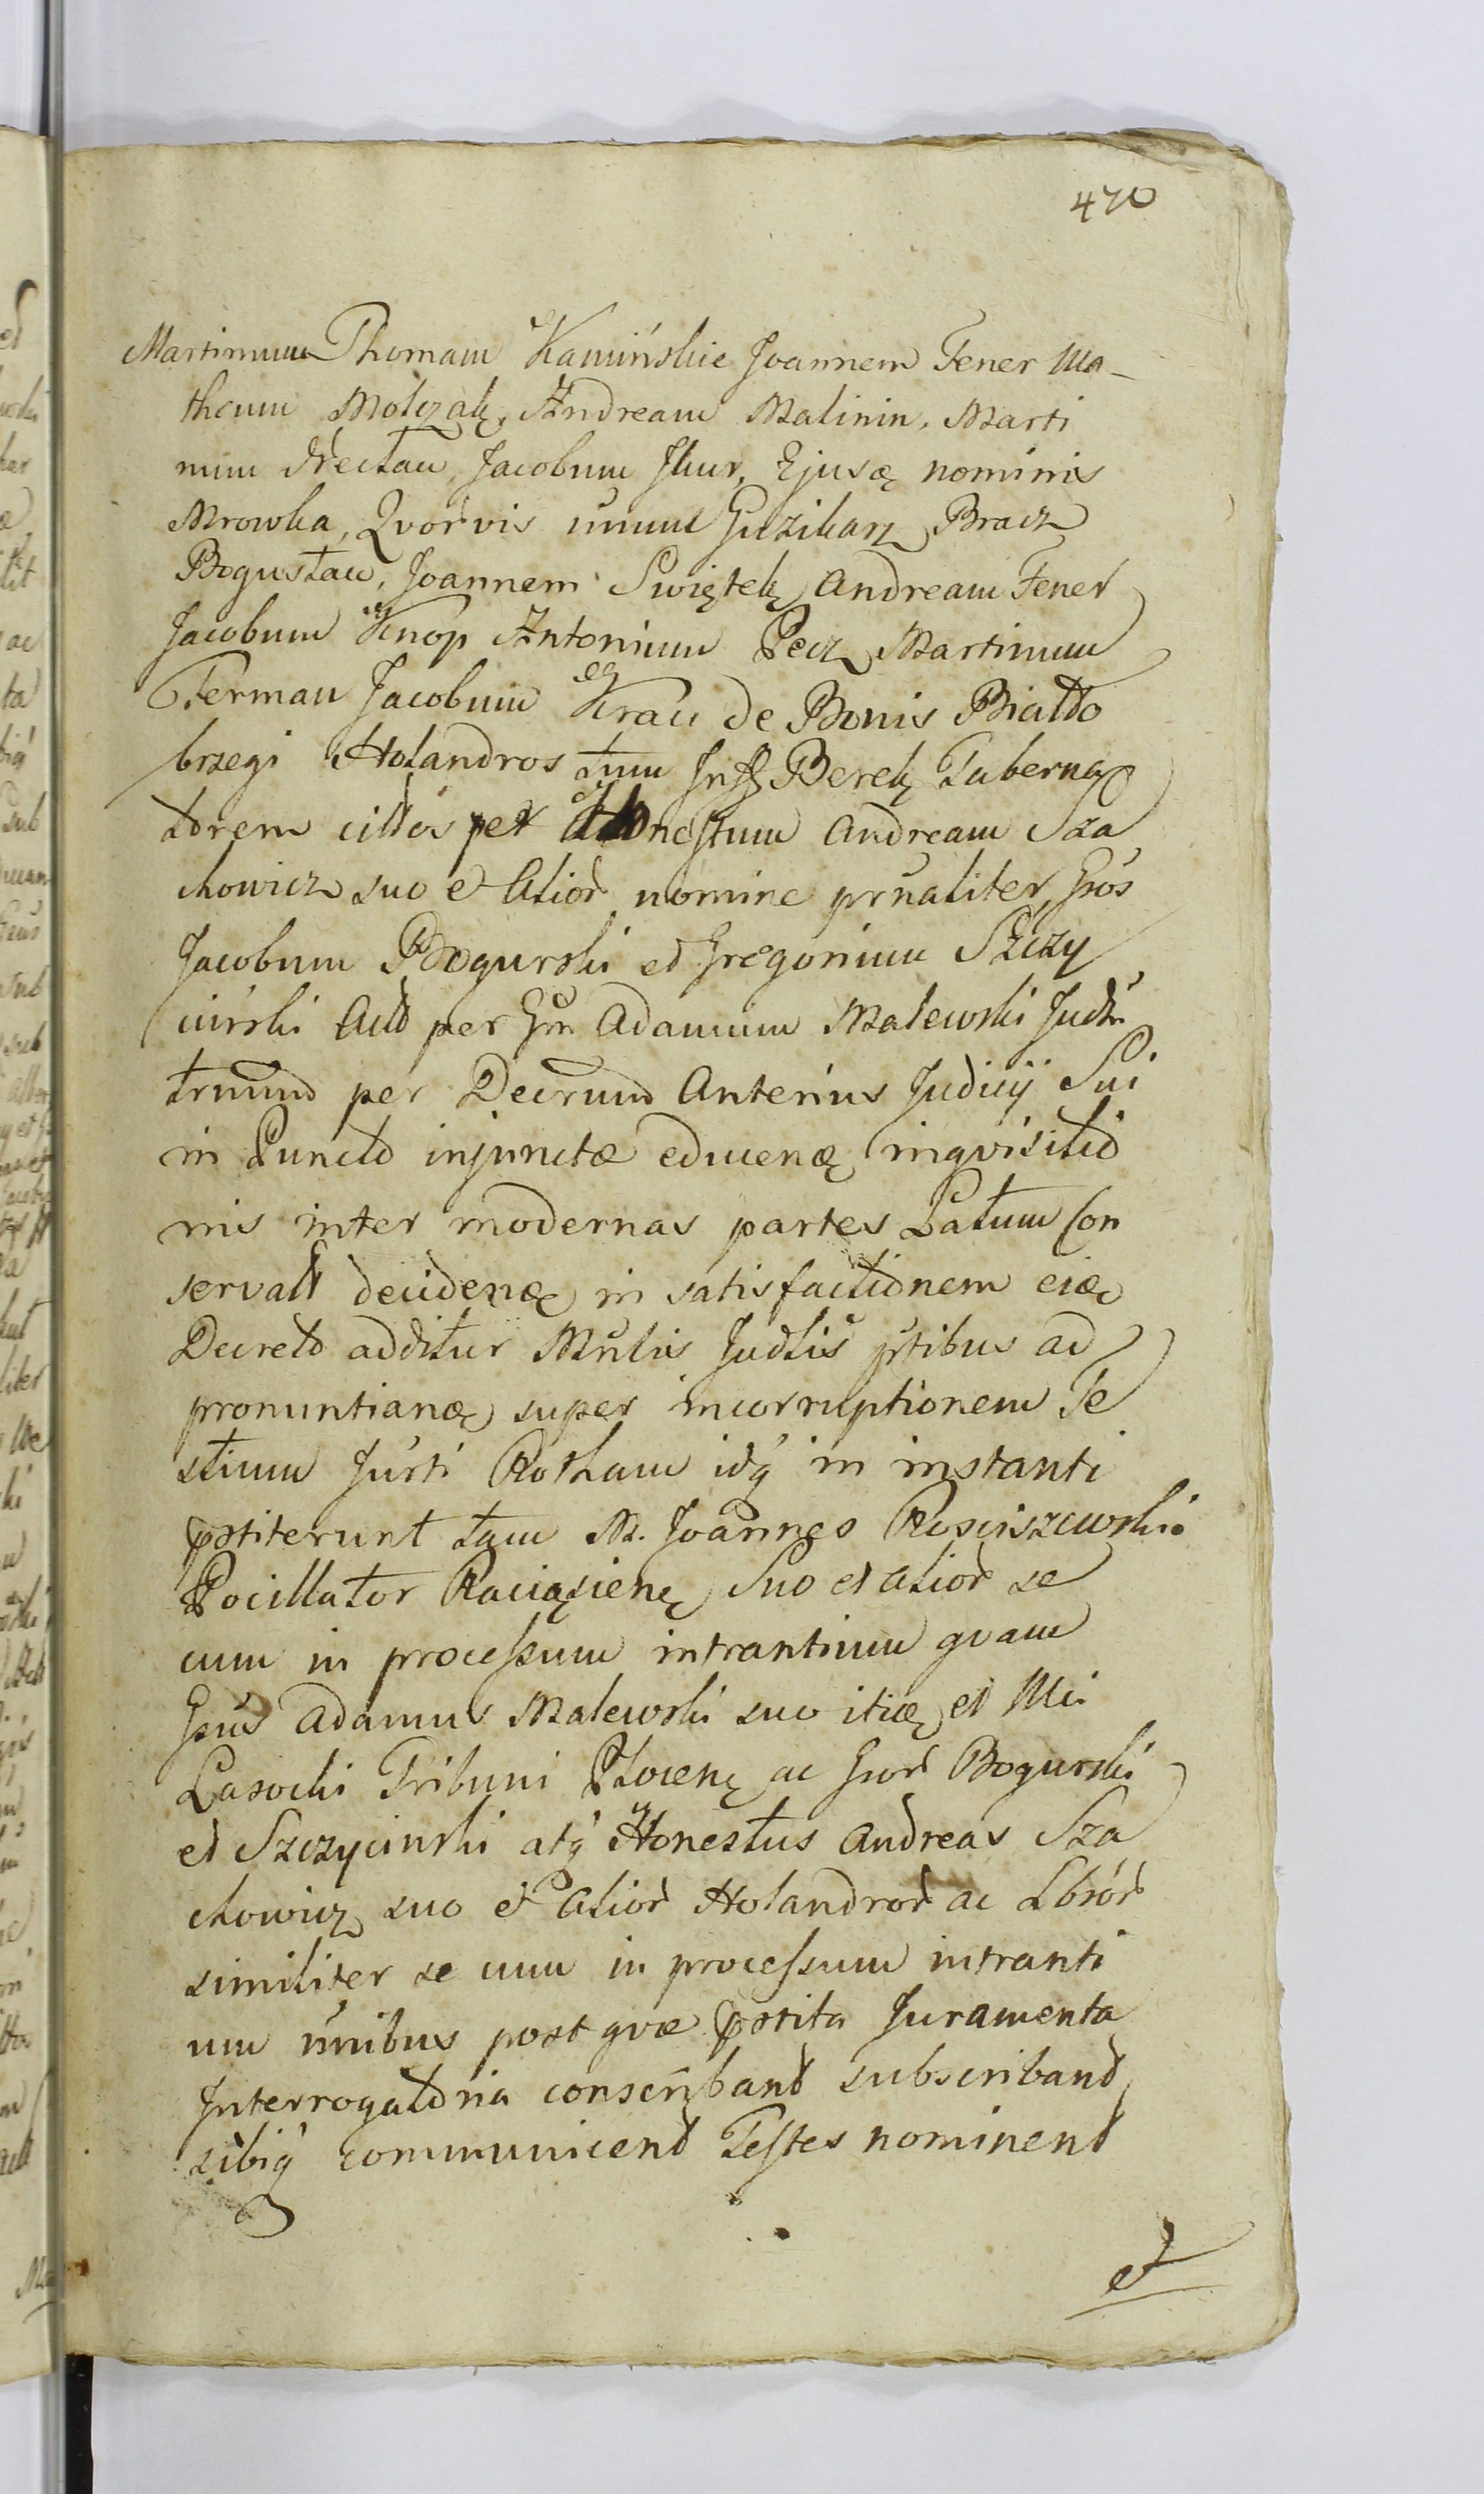 470
Martinum Thomam Kamińskie Joannem Fener Ma-
theum Molczak, Andream Malinin, Marti
num Nectau, Jacobum Jkur, Ejusq nominis
Mrowka, Qvorvis unum Guzikarz Bracz
Bogustaw, Joannem Swiętek, Andream Fener
Jacobum Knop Antonium Pecz Martinum
Ferman Jacobum Krau de Bonis Biało
brzegi Holandros tum Inf Berek Taberna
torem cittos per Honestum Andream Sza
chowicz suo et Alior nomine prnaliter, Gsos
Jacobum Bogurski et Gregorium Szczy
cinski Actt per Gm Adamum Malewski Judtr
trmind per Decrum Anterius Judicij Sui
in Puncto injunctæ educenæ inqvisitio
nis inter modernas partes Latum Con
servatt decidenæ in satisfactionem eiæ
Decreto additur Mnlus Judtis prtibus ad
pronuntianæ super incorruptionem Te
stium Jurti Rotham idq in instanti
pstiterunt tam M. Joannes Rosciszewski
Pocillator Raciązienę suo et alior se
cum in processum intrantium qvam
Gsus Adamus Malewski suo itiæ et Mi
Lasocki Tribuni Plocenę ac Gsor Bogurski
et Szczycinski atq Honestus Andreas Sza
chowicz suo et Alior Holandror ac Lbror
similiter se cum in processum intranti
um nnibus post qvæ pstita Juramenta
Interrogatoria conscribant subscribant
sibiq communicent Testes nominent
et